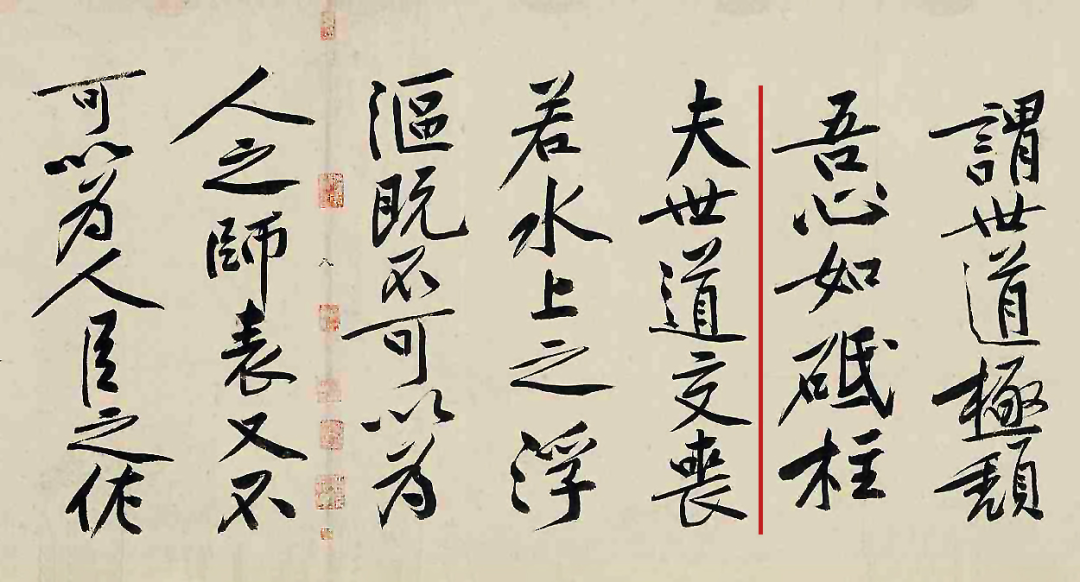 謂世道極頹
吾心如砥柱
夫世道交喪
若水上之浮
漚既不可以為
人之師表又不
可以為人臣之佐